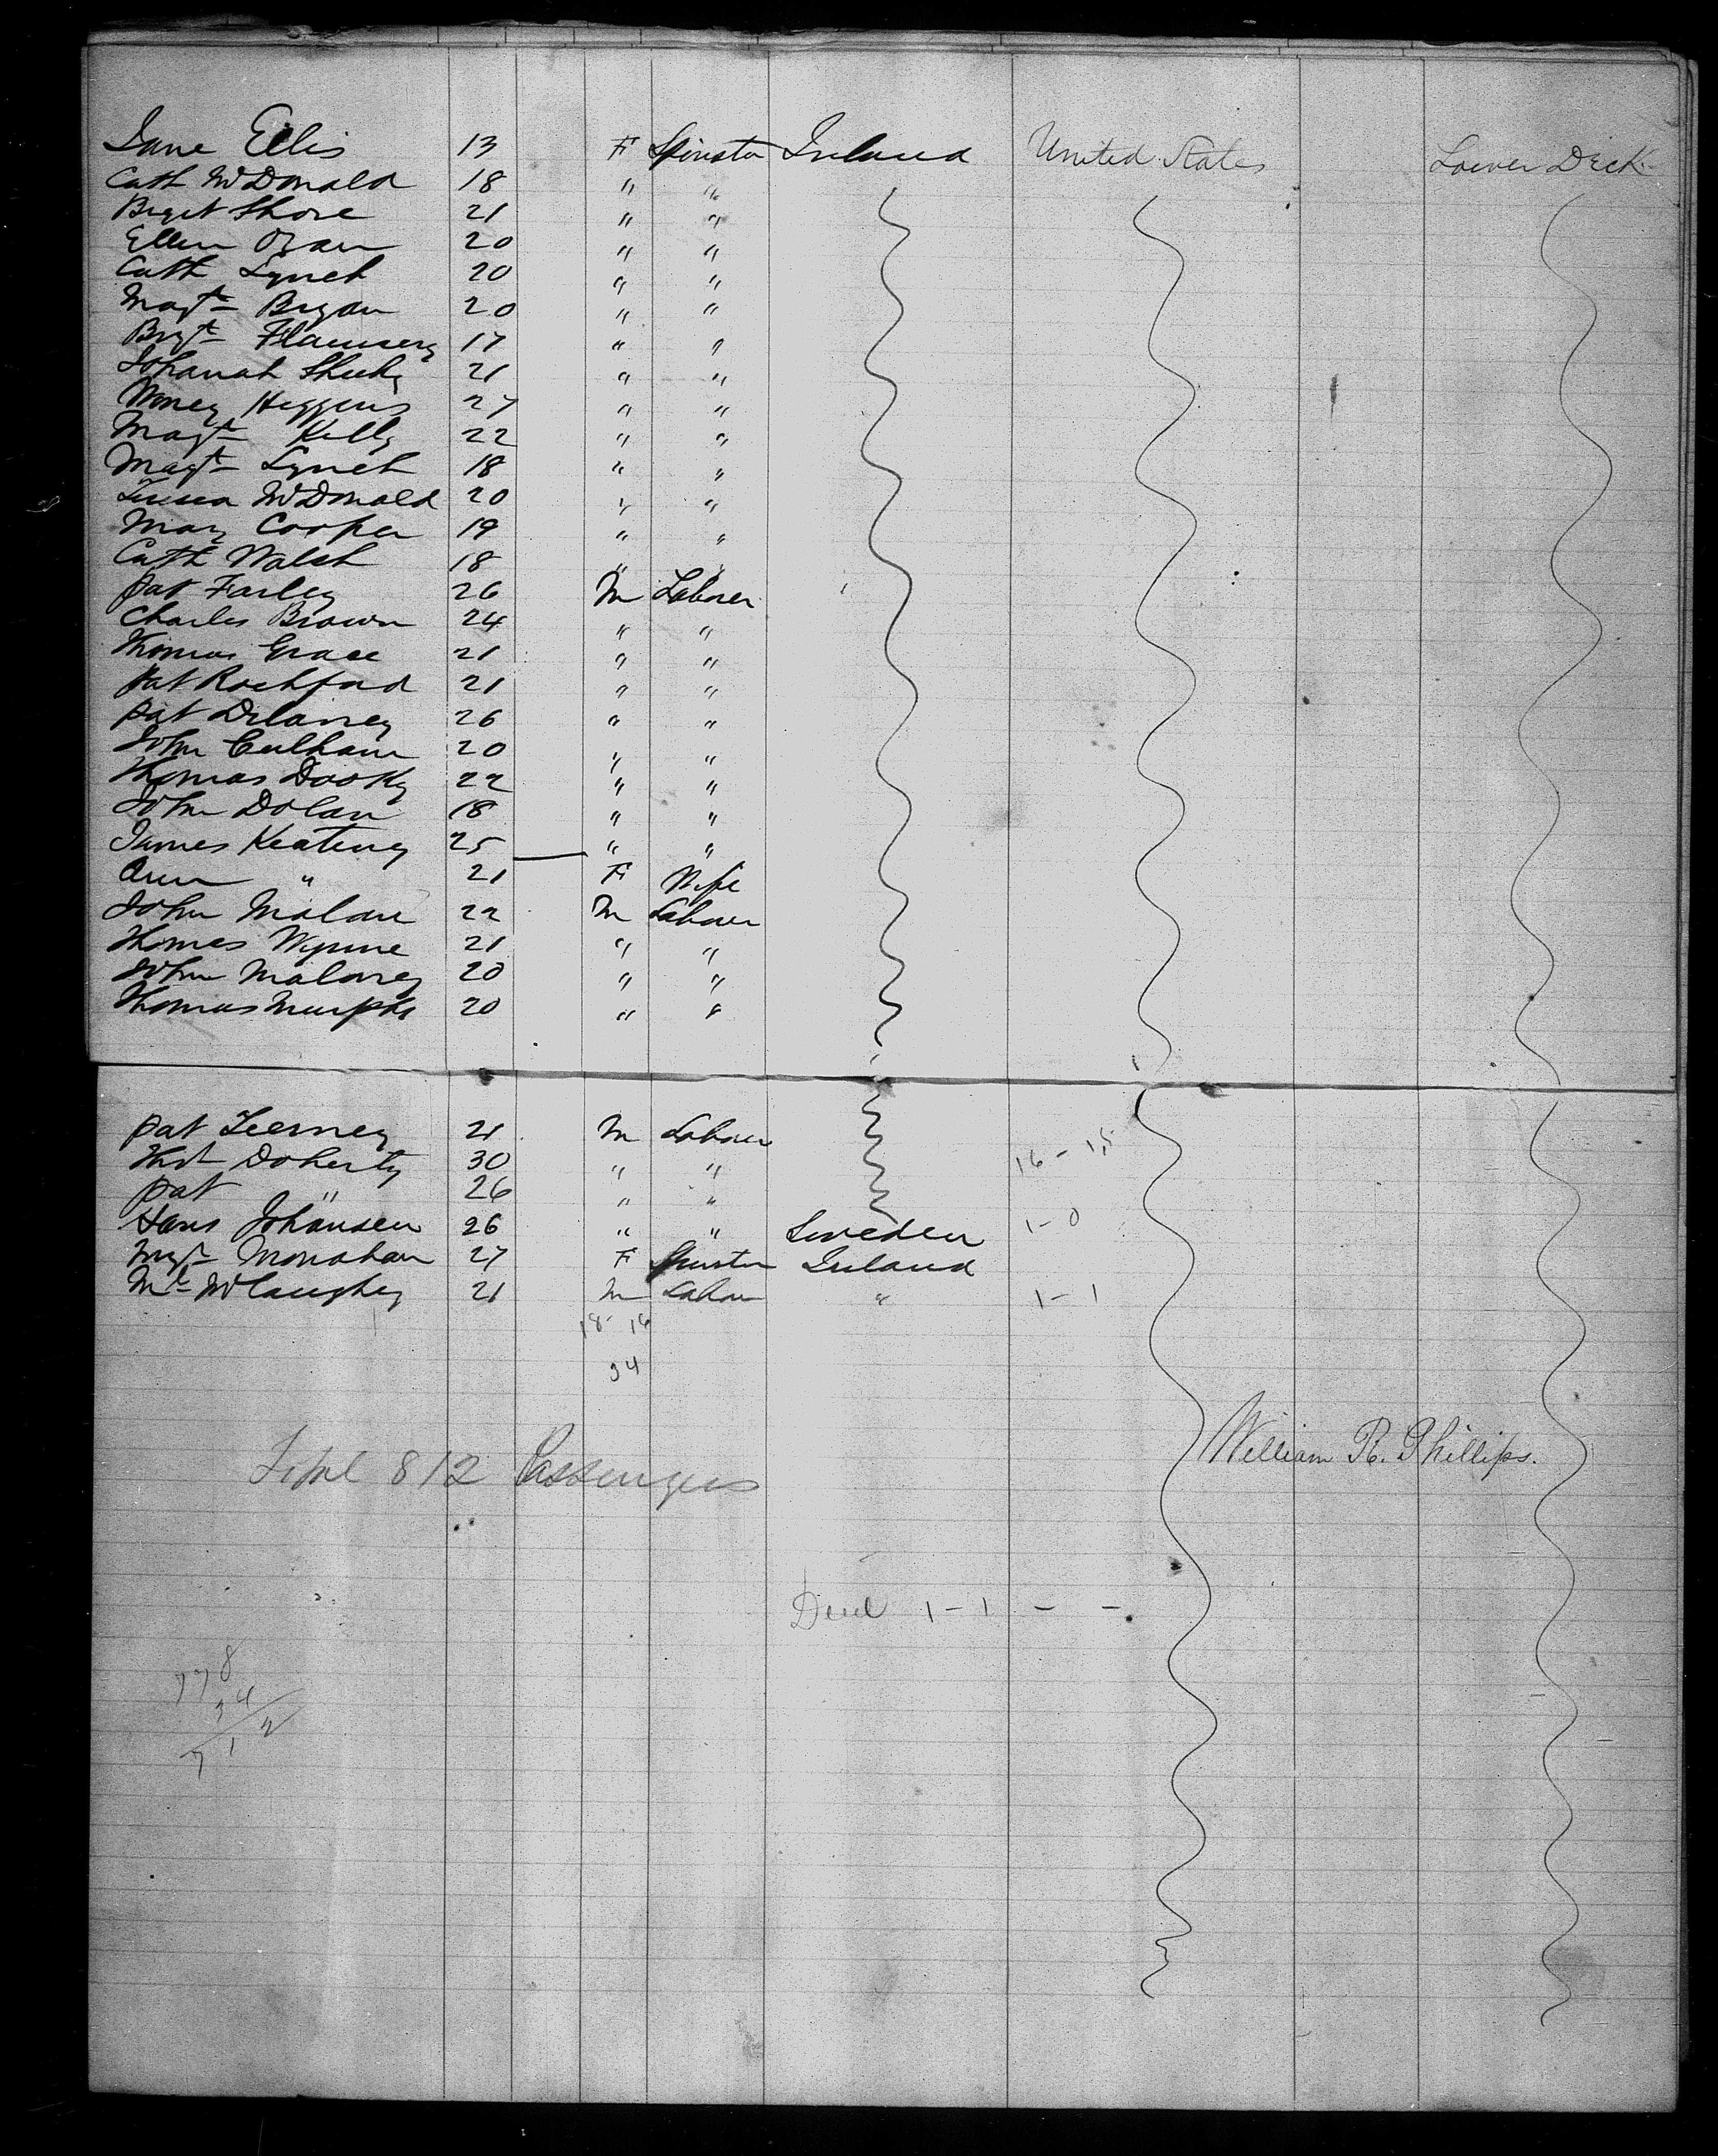 Jane Ellis 13 F Spinster Ireland United States Lower Deck
Cath McDonald 18 " "
Briget Shore 21 " "
Ellen 20 " "
Cath Lynch 20 " "
Magt Bryan 20 " "
Brgt Flannery 17 " "
Johanah Sheehy 21 " "
Honey Higgens 27 " "
Magt Kelly 22 " "
Magt Lynch 18 " "
Teresa McDonald 20 " "
Mary Cooper 19 " "
Cath Walsh 18 " "
Pat Farley 26 M Laborer
Charles Brown 24 " "
Thomas Grace 21 " "
Pat Rochford 21 " "
Pat Delaney 26 " "
John Culhane 20 " "
Thomas 22 " "
John Dolan 18 " "
James Keating 25 " "
Ann " 21 F Wife
John Malone 22 M Laborer
Thomas Wynne 21 " "
John Maloney 20 " "
Thomas Murphy 20 " "
Pat Tierney 21 M Laborer
Doherty 30 " " 16 - 15
Pat " 26 " "
Hans Johansen 26 " " Sweden 1-0
Magt Monahan 27 F Spinster Ireland
Mc McLaughey 21 M Labour " 1-1
18 16
34
Total 812 Passengers
William R. Phillips.
Died 1-1 - -
778
34
712